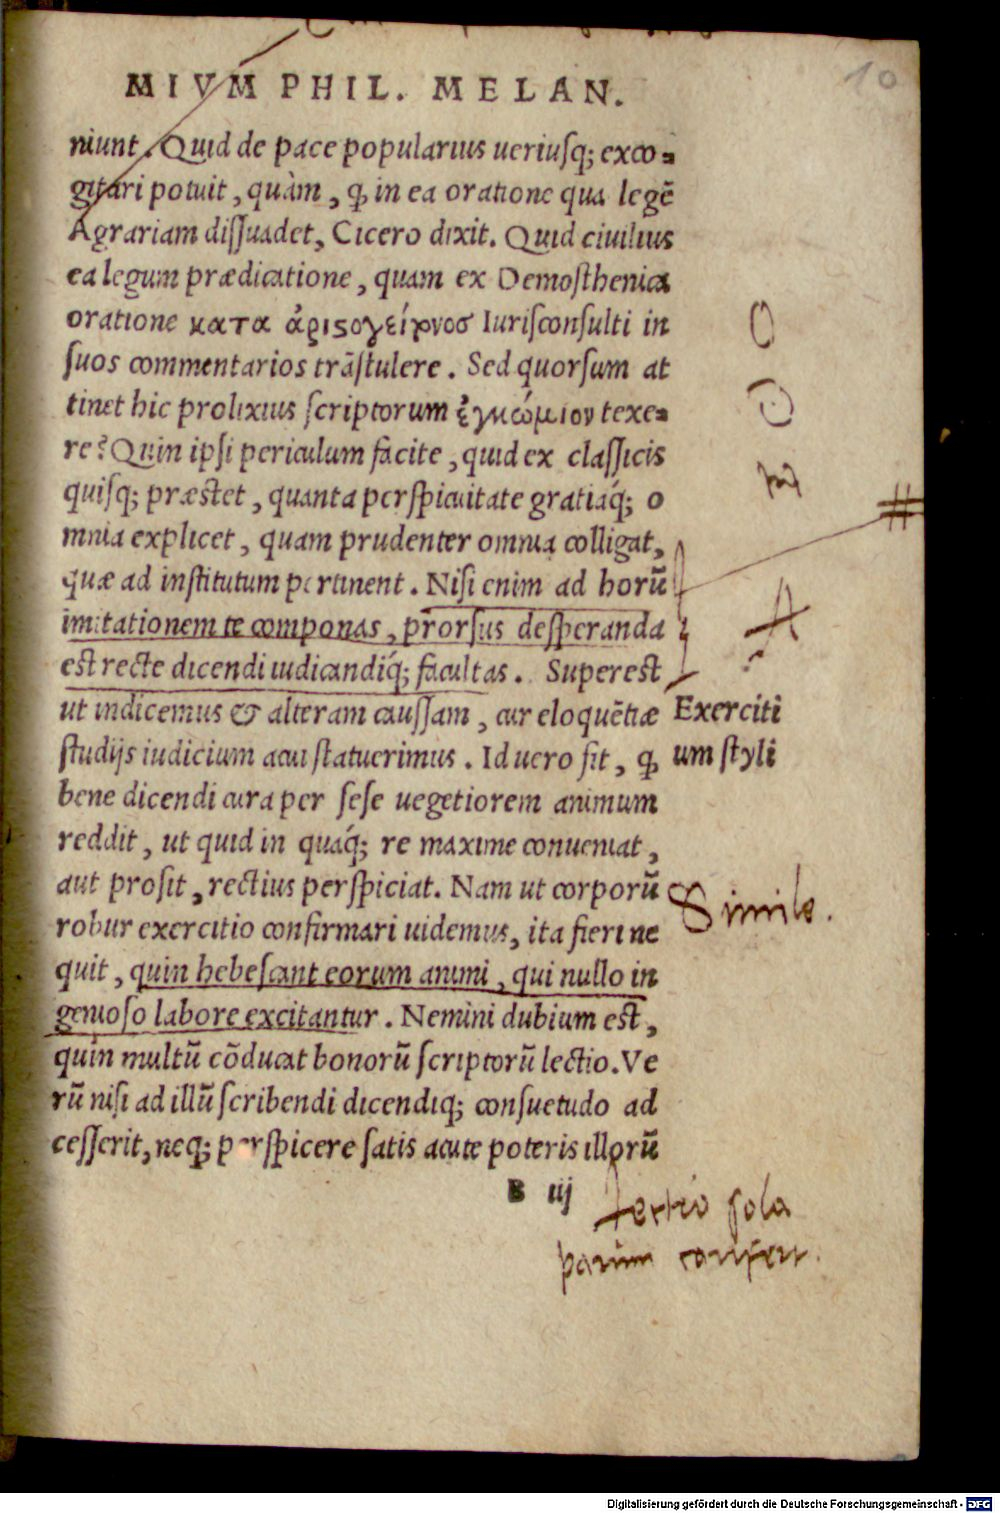 10
MIVM PHIL. MELAN.
niunt. Quid de pace popularius ueriusq; exco-
gitari potuit, quàm, ꝙ in ea oratione qua legẽ
Agrariam dissuadet, Cicero dixit. Quid ciuilius
ea legum prædicatione, quam ex Demosthenica
oratione κατα ἀριϛογείρνοσ Iurisconsulti in
suos commentarios trãstulere. Sed quorsum at
tinet hic prolixius scriptorum ἐγκώμιον texe-
re? Quin ipsi periculum facite, quid ex classicis
quisq; præstet, quanta perspicuitate gratiaq́; o
mnia explicet, quam prudenter omnia colligat,
quæ ad institutum pertinent. Nisi enim ad horũ
imitationem te componas, prorsus desperanda
est recte dicendi iudicandiq́; facultas. Superest
ut indicemus & alteram caussam, cur eloquẽtiæ
studijs iudicium acui statuerimus. Id uero fit, ꝙ
bene dicendi cura per sese uegetiorem animum
reddit, ut quid in quaq́; re maxime conueniat,
aut prosit, rectius perspiciat. Nam ut corporũ
robur exercitio confirmari uidemus, ita fieri ne
quit, quin hebescant eorum animi, qui nullo in
genioso labore excitantur. Nemini dubium est,
quin multũ cõducat bonorũ scriptorũ lectio. Ve
rũ nisi ad illũ scribendi dicendiq; consuetudo ad
cesserit, neq; perspicere satis acute poteris illorũ
B iij
Exerciti
um styli
Simile.
lectio sola
parum confert.
Digitalisierung gefördert durch die Deutsche Forschungsgemeinschaft - DFG